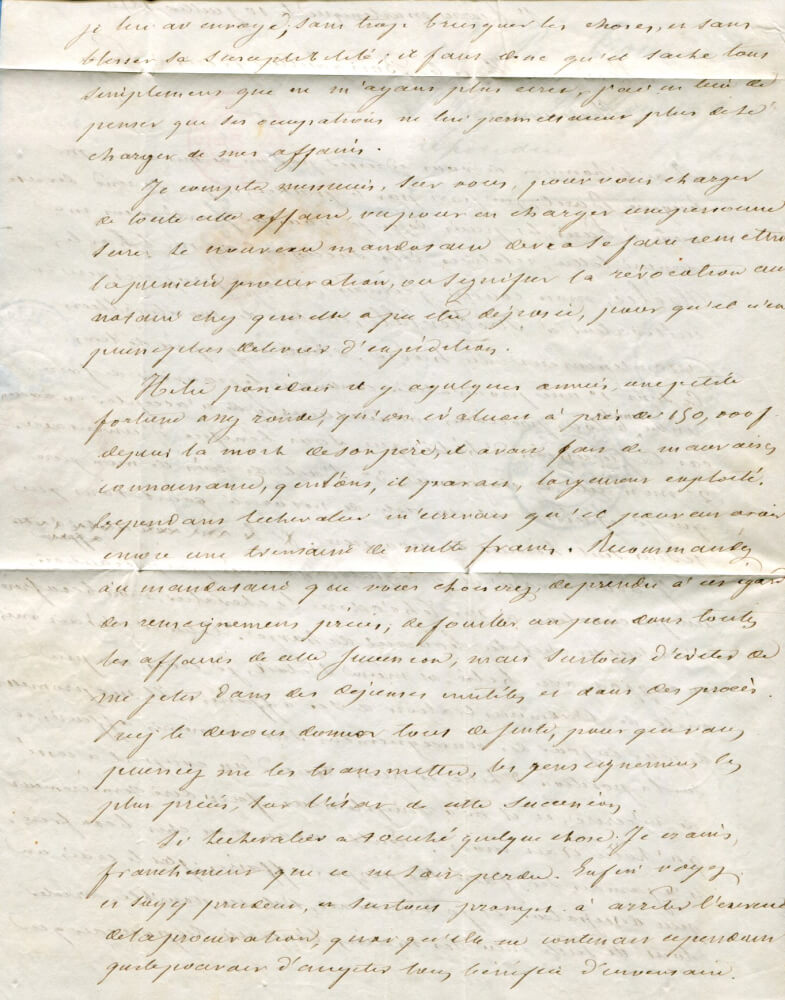 je lui ai envoyé, sans trop brusquer les choses, et sans
blesser sa susceptibilité; il faut donc qu'il sache tout
simplement que ne m'ayant plus écrit, j'ai eu lieu de
penser que ses occupations ne lui permettaient plus de se
charger de mes affaires.
Je compte messieurs, sur vous, pour vous charger
de toute cette affaire, ou pour en charger une personne
sure. Le nouveau mandataire devra se faire remettre
la premiere procuration, ou signifier la révocation au
notaire chez qui elle a pu être déposée, pour qu'il n'en
puisse plus delivrer d'expédition.
possédait il y a quelques années, une petite
fortune assez ronde, qu'on évaluait à près de 150,000 f.
depuis la mort de son père, il avait fait de mauvaises
connaissances, qui l'ont, il parait, largement exploité.
Cependant Lechevalier m'écrivait qu'il pouvait avoir
encore une trentaine de mille francs. Recommandez
au mandataire que vous choisirez, de prendre à cet égard
des renseignemens précis, de fouiller un peu dans toutes
les affaires de cette succession, mais surtout d'éviter de
me jeter dans des dépenses inutiles et dans des procès.
le de vous donner tout de suite, pour que vous
puissiez me les transmettre, les renseignemens les
plus précis, sur l'état de cette succession.
Si Lechevalier a touché quelque chose, Je crains,
franchement que ce ne soit perdu. Enfin voyez
et soyez prudens, et surtout prompts à arrêter l'
de la procuration, quoiqu'elle ne contenait cependant
que le pouvoir d'accepter sous bénéfice d'inventaire.